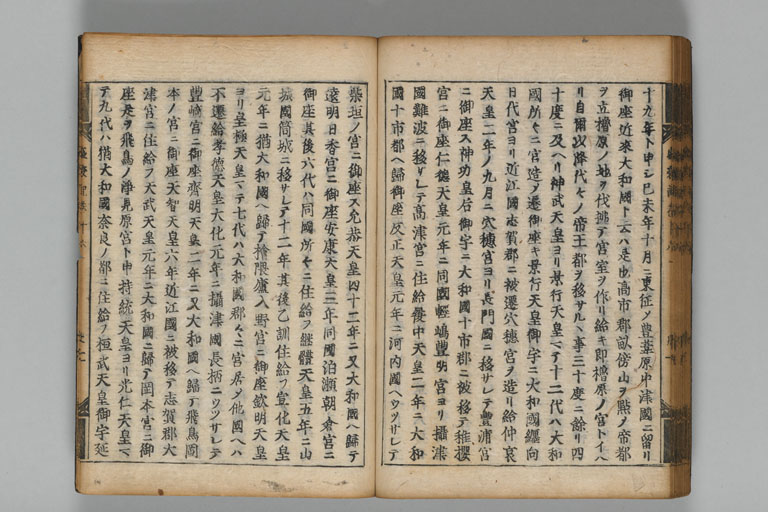 十九年ト申シ巳未年十月ニ東征シ豊葦原中津國ニ留リ
御座近來大和國ト云ハ是也高市郡畝傍山ヲ點シ帝都
ヲ立橿原ノ地ヲ伐掃テ宮室ヲ作リ給キ即橿原ノ宮トイヘ
リ自爾以降代々ノ帝王都ヲ移サルヽ事三十度ニ餘リ四
十度ニ及ヘリ神武天皇ヨリ景行天皇マテ十二代ハ大和
國所々ニ宮造シ遷御座キ景行天皇御宇ニ大和國纏向
日代宮ヨリ近江國志賀郡ニ被遷穴穗宮ヲ造リ給仲哀
天皇二年ノ九月ニ穴穗宮ヨリ長門國ニ移サレテ豊浦宮
ニ御座ス神功皇后御宇ニ大和國十市郡ニ被移テ稚櫻
宮ニ御座仁德天皇元年ニ同國輕嶋豊明宮ヨリ攝津
國難波ニ移サレテ高津宮ニ住給履中天皇二年ニ大和
國十市郡ヘ歸御座反正天皇元年ニ河内國ヘウツサレテ
柴垣ノ宮ニ御座ス允恭天皇四十二年ニ又大和國ヘ歸テ
遠明日香宮ニ御座安康天皇三年同國泊瀬朝倉宮ニ
御座其後六代ハ同國所々ニ住給フ繼體天皇五年ニ山
城國筒城ニ移サレテ十二年其後乙訓住給フ宣化天皇
元年ニ猶大和國ヘ歸テ檜隈廬入野宮ニ御座欽明天皇
ヨリ皇極天皇マテ七代ハ大和國郡々ニ宮居シ他國ヘハ
不遷給孝德天皇大化元年ニ攝津國長柄ニウツサレテ
豊崎宮ニ御座齊明天皇二年ニ又大和國ヘ歸テ飛鳥岡
本ノ宮ニ御座天智天皇六年近江國ニ被移テ志賀郡大
津宮ニ住給フ天武天皇元年ニ大和國ニ歸テ岡本宮ニ御
座是ヲ飛鳥ノ淨見原宮ト申持統天皇ヨリ光仁天皇マ
テ九代ハ猶大和國奈良ノ都ニ住給フ桓武天皇御宇延